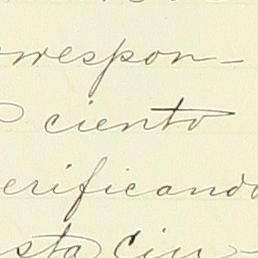 rrespon-
ciento
erificando
sta ciu-